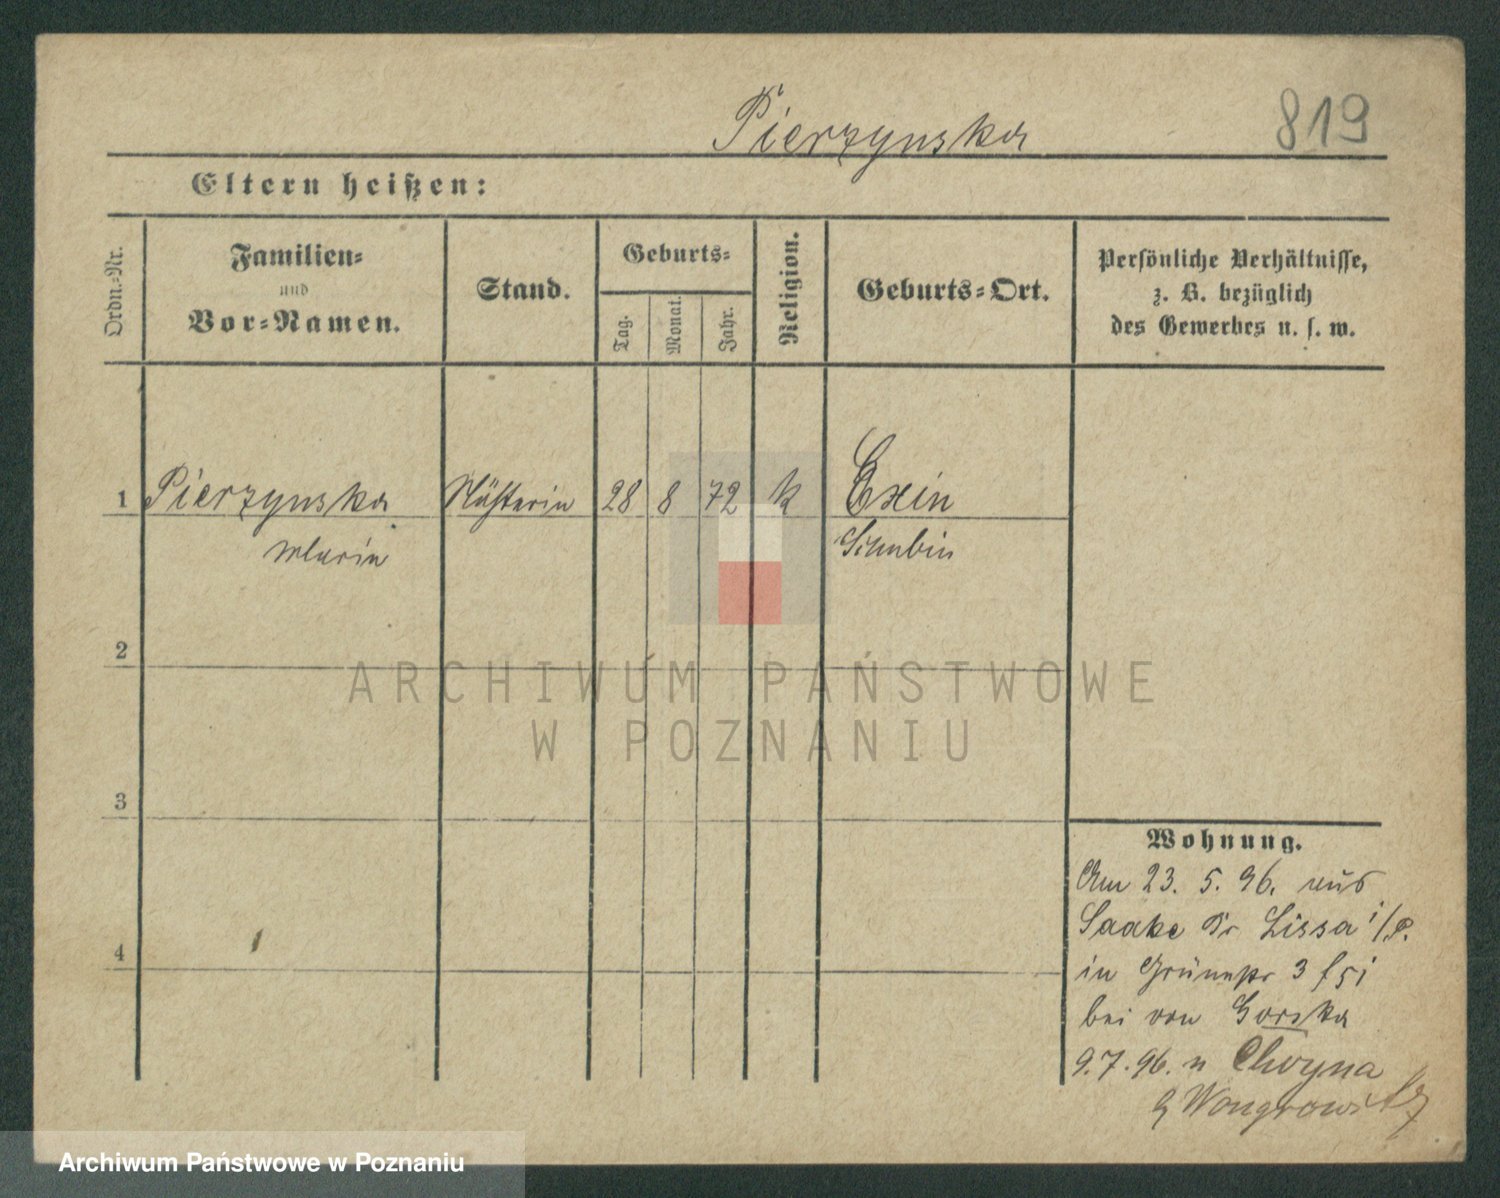 Pierzynska
819
Eltern heißen:
Ordn.-Nr.
Familien-
und
Vor-Namen.
Stand.
Geburts-
Tag.
Monat.
Jahr.
Religion.
Geburts-Ort.
Persönliche Verhältnisse,
z. B. bezüglich
des Gewerbes u. s. w.
1 Pierzynska 28 8 72 k Exin
Marie Schubin
2
3
4
Wohnung.
Am 23. 5. 96. aus
Saake Kr Lissa i/P.
in Grünestr 3
bei von Gorska
9.7.96. n Choyna
Wongrowitz
ARCHIWUM PAŃSTWOWE
W POZNANIU
Archiwum Państwowe w Poznaniu